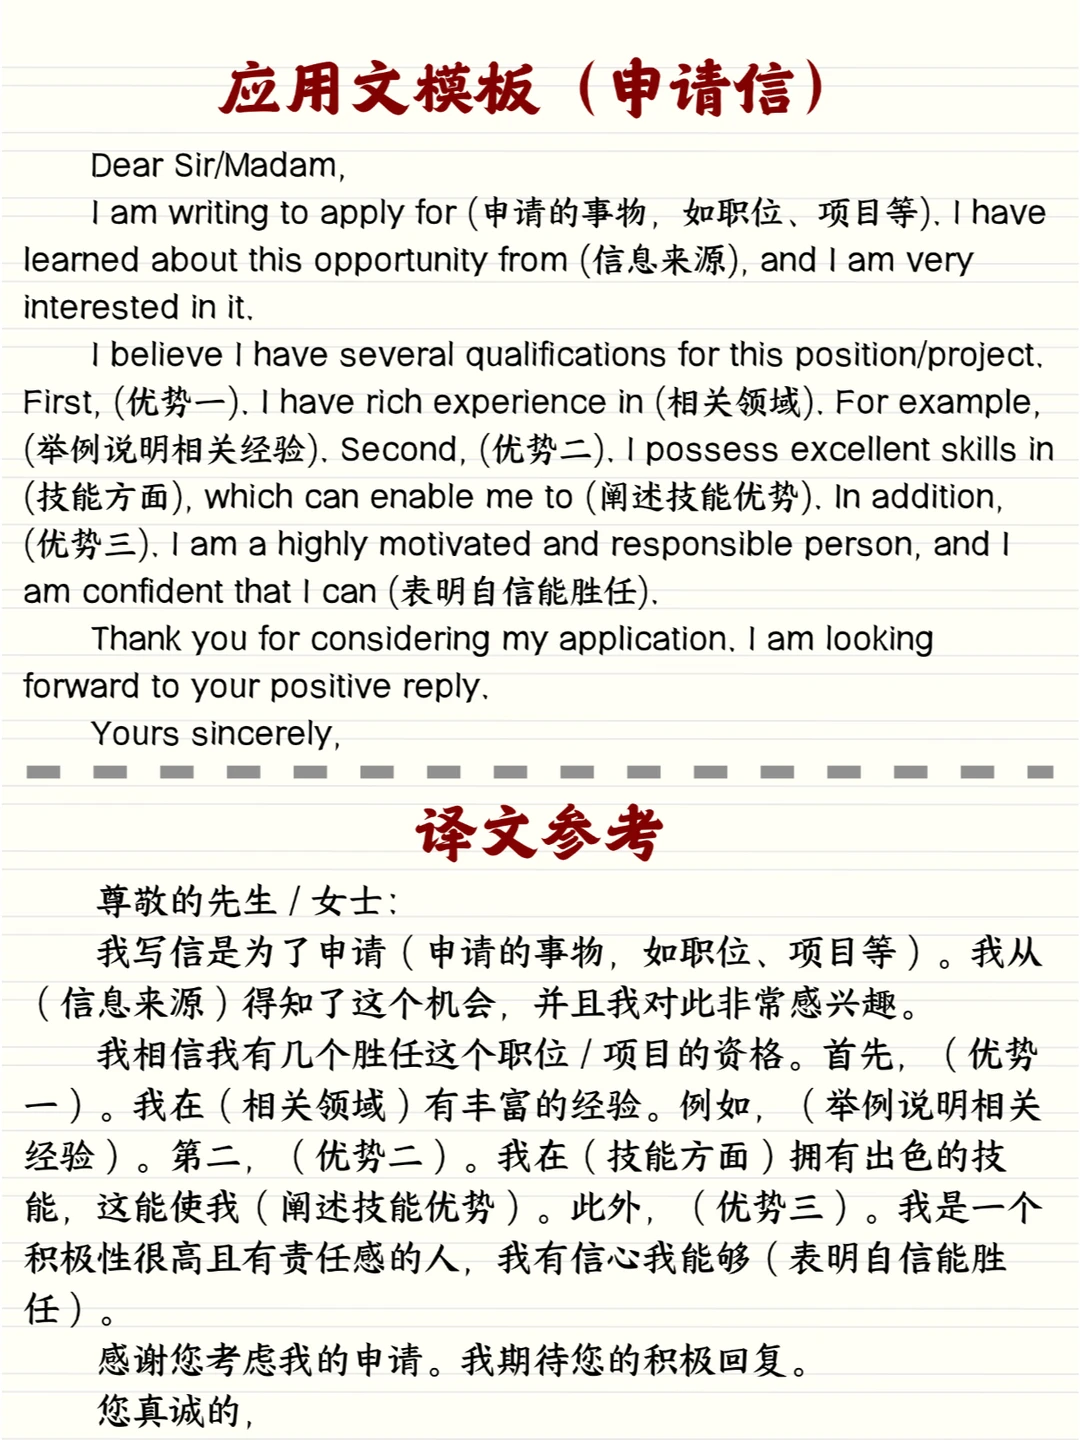 应用文模板（申请信）
Dear Sir/Madam,
I am writing to apply for (申请的事物，如职位、项目等). I have
learned about this opportunity from (信息来源), and I am very
interested in it.
I believe I have several qualifications for this position/project.
First, (优势一). I have rich experience in (相关领域). For example,
(举例说明相关经验). Second, (优势二). I possess excellent skills in
(技能方面), which can enable me to (阐述技能优势). In addition,
(优势三). I am a highly motivated and responsible person, and I
am confident that I can (表明自信能胜任).
Thank you for considering my application. I am looking
forward to your positive reply.
Yours sincerely,
译文参考
尊敬的先生 / 女士：
我写信是为了申请（申请的事物，如职位、项目等）。我从
（信息来源）得知了这个机会，并且我对此非常感兴趣。
我相信我有几个胜任这个职位 / 项目的资格。首先，（优势
一）。我在（相关领域）有丰富的经验。例如，（举例说明相关
经验）。第二，（优势二）。我在（技能方面）拥有出色的技
能，这能使我（阐述技能优势）。此外，（优势三）。我是一个
积极性很高且有责任感的人，我有信心我能够（表明自信能胜
任）。
感谢您考虑我的申请。我期待您的积极回复。
您真诚的，